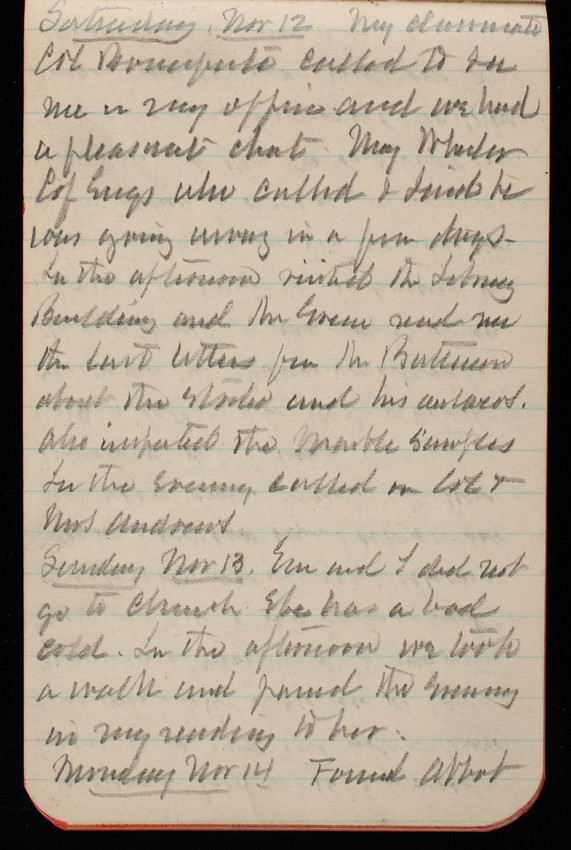 Saturday, Nov 12 My classmate
Col Bonaparte called to see
me in my office and we had
a pleasant chat. Maj Wheeler
C of Engs also called &
was going away in a few days.
In the afternoon visited the Library
Building and Mr Green read me
the last letters from Mr Bateman
about the and his
Also inspected the Marble samples
In the evening called on Col &
Mrs Andrews
Sunday Nov 13. Em and I did not
go to church. She has a bad
cold. In the afternoon we took
a walk and passed the evening
in my reading to her.
Monday Nov 14 Found Abbot